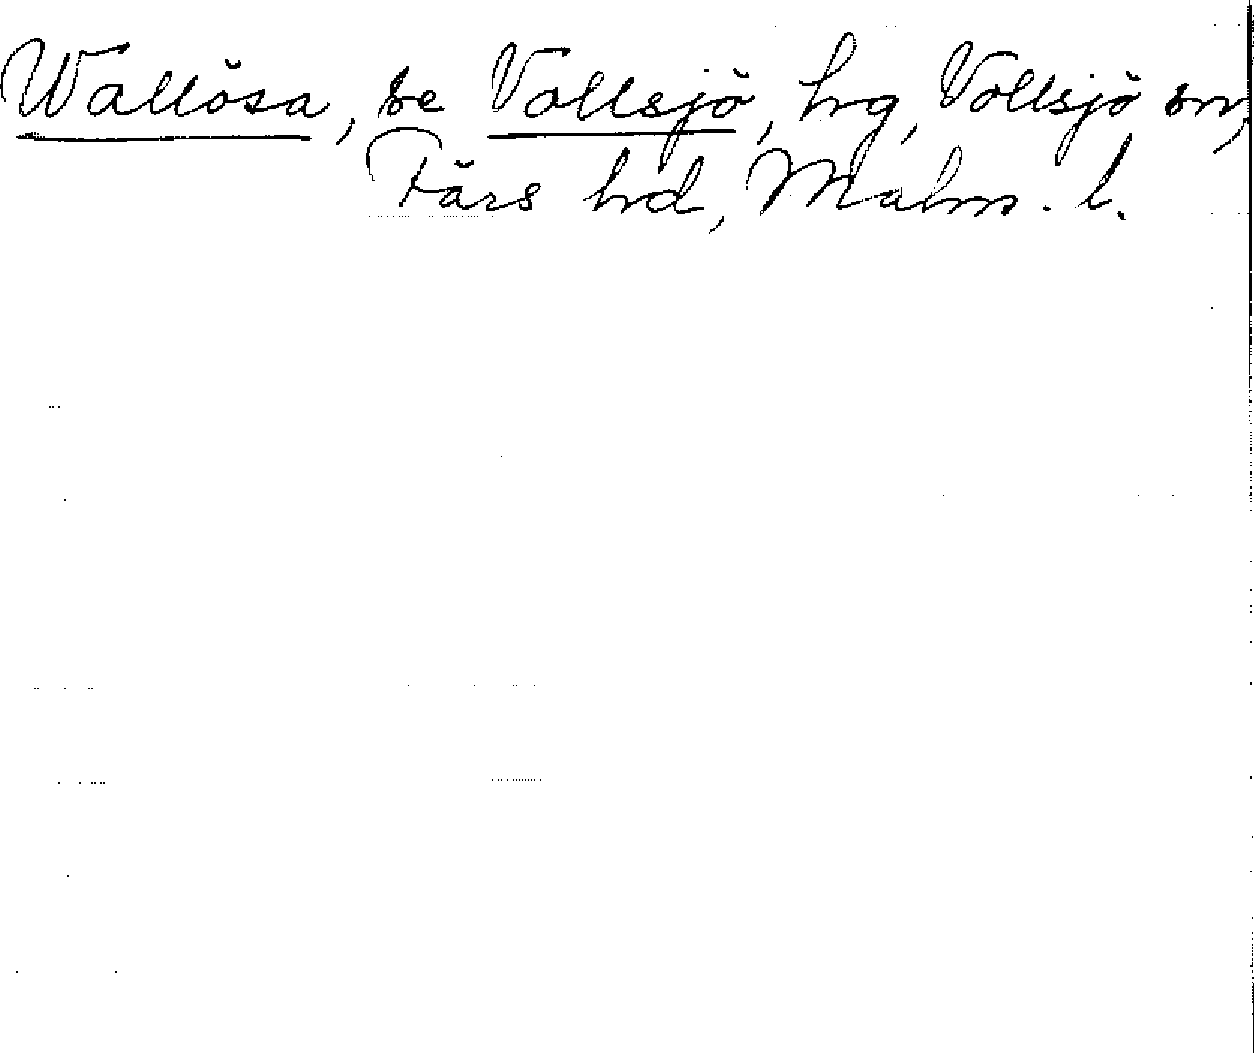 Wallösa, se Vollsjö, hg, Vollsjö sn,
Färs hd, Malm. l.